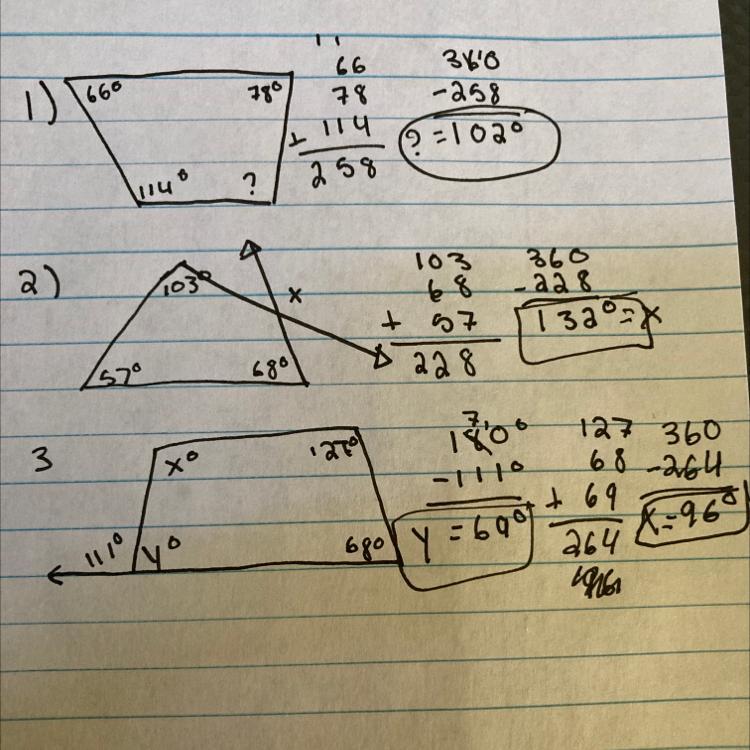 1)
66° 78°
114° ?
66
78
+ 114
258
360
-258
? = 102°
2)
103°
x
57° 68°
103
68
+ 57
228
360
-228
132° = x
3
x°
111° y° 68°
180°
-111°
y = 69°
127
68
+ 69
264
360
-264
x = 96°